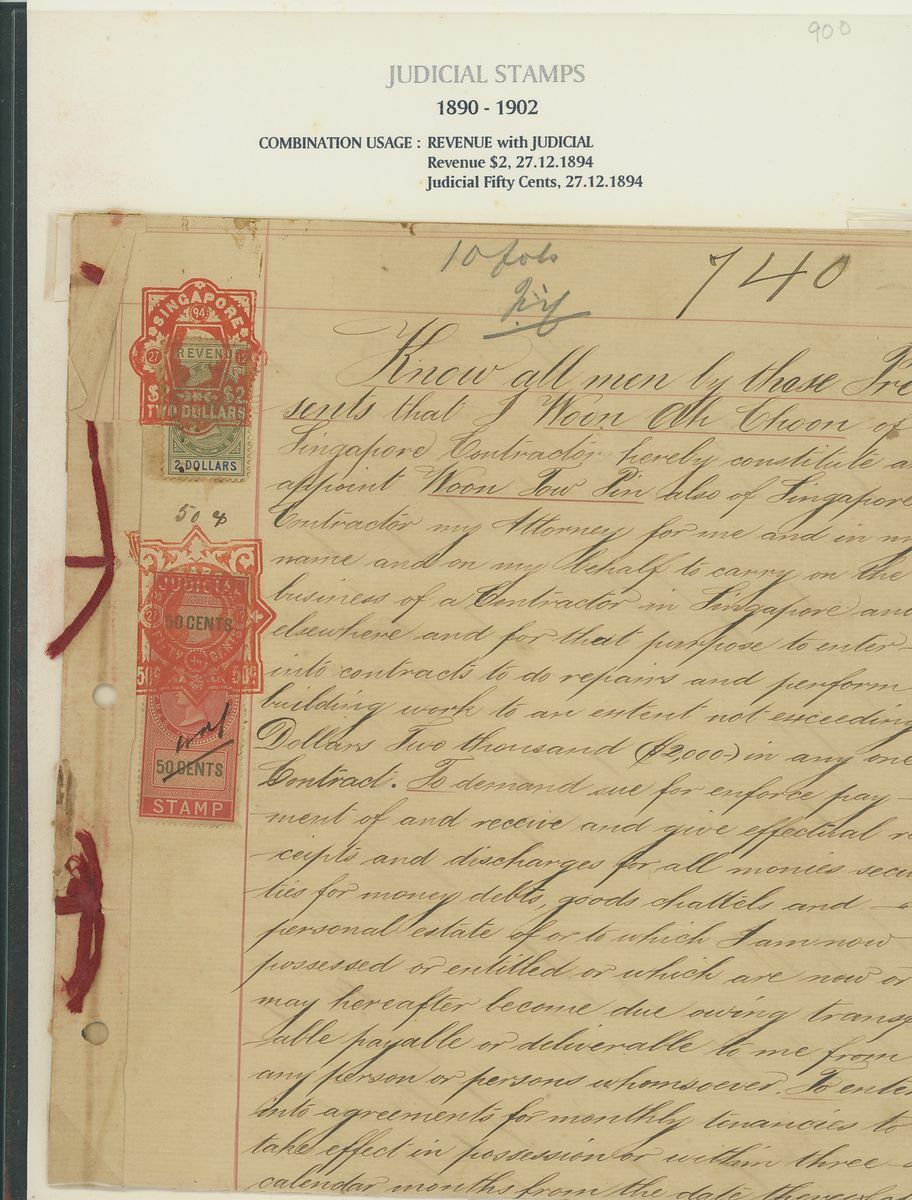 900
JUDICIAL STAMPS
1890 - 1902
COMBINATION USAGE : REVENUE with JUDICIAL
Revenue $2, 27.12.1894
Judicial Fifty Cents, 27.12.1894
10 fols
740
SINGAPORE
94
27 12
REVENU
$2 $2
TWO DOLLARS
2 DOLLARS
50 ¢
JUDICIAL
50 CENTS
FIFTY CENTS
50c 50c
50 CENTS
STAMP
Know all men by those Pre
sents that I Woon Ah Choon of
Singapore Contractor hereby constitute a
appoint Woon Tow Pin also of Singapore
Contractor my Attorney for me and in m
name and on my behalf to carry on the
business of a Contractor in Singapore and
elsewhere and for that purpose to enter
into contracts to do repairs and perform
building work to an extent not exceeding
Dollars Two thousand ($2,000-) in any one
Contract. To demand sue for enforce pay-
ment of and receive and give effectual re
ceipts and discharges for all monies secu
ties for money debts, goods chattels and
personal estate of or to which I am now
possessed or entitled or which are now or
may hereafter become due owing transf
able payable or deliverable to me from
any person or persons whomsoever. To enter
into agreements for monthly tenancies to
take effect in possession or within three
calendar months from the date